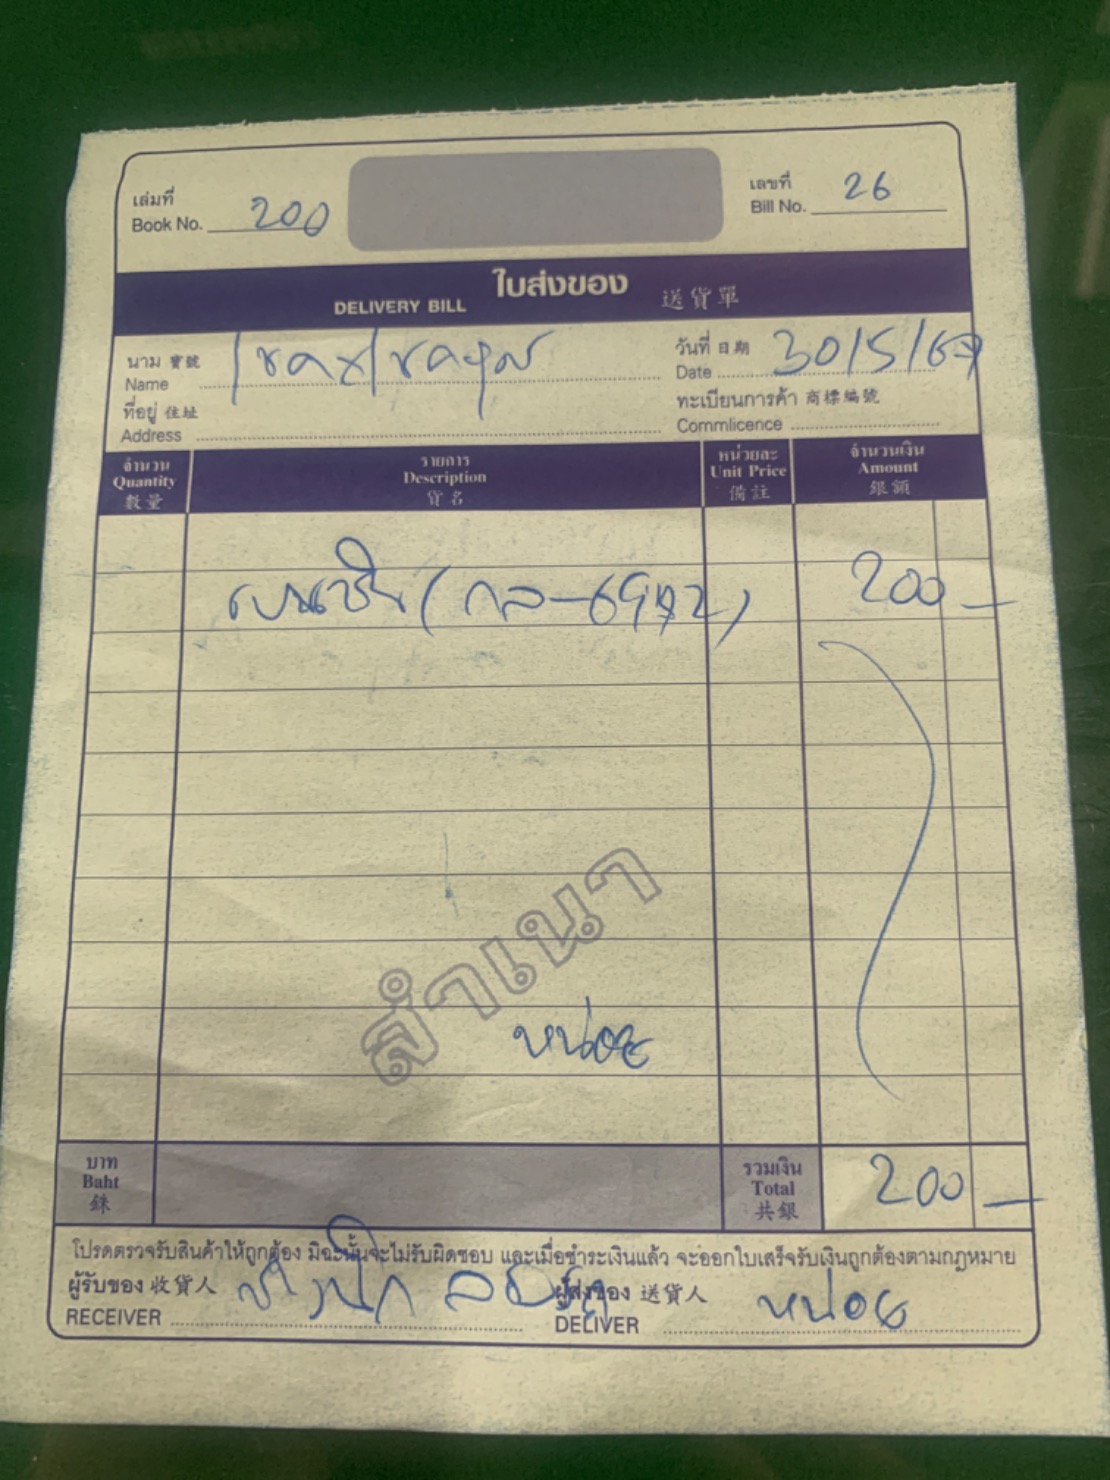 เล่มที่
Book No. 200
เลขที่
Bill No. 26
ใบส่งของ
DELIVERY BILL 送貨單
นาม 寶號
Name
วันที่ 日期
Date 30/5/67
ที่อยู่ 住址
Address
ทะเบียนการค้า 商標編號
Commlicence
จำนวน
Quantity
數量
รายการ
Description
貨名
หน่วยละ
Unit Price
備註
จำนวนเงิน
Amount
銀額
เบนซิน 200 –
สำเนา
หน่อย
บาท
Baht
銖
รวมเงิน
Total
共銀
200 –
โปรดตรวจรับสินค้าให้ถูกต้อง มิฉะนั้นจะไม่รับผิดชอบ และเมื่อชำระเงินแล้ว จะออกใบเสร็จรับเงินถูกต้องตามกฎหมาย
ผู้รับของ 收貨人
RECEIVER
ผู้ส่งของ 送貨人
DELIVER หน่อย